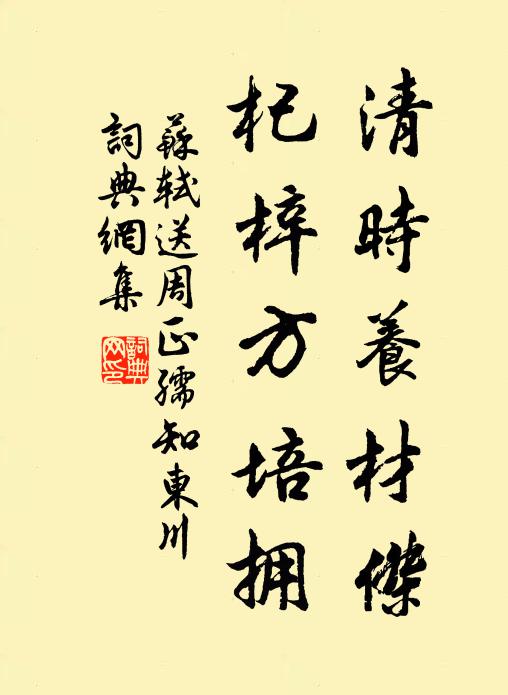 清時養材傑
杞梓方培拥
蘇軾送周正孺知東川
詞典網集
詞典网印